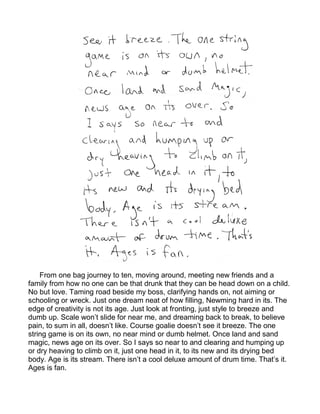 See it breeze. The one string
game is on its own, no
near mind or dumb helmet.
Once land and sand magic,
news age on its over. So
I says so near to and
clearing and humping up or
dry heaving to climb on it,
just one head in it, to
its new and its drying bed
body. Age is its stream.
There isn't a cool deluxe
amount of drum time. That's
it. Ages is fan.
From one bag journey to ten, moving around, meeting new friends and a
family from how no one can be that drunk that they can be head down on a child.
No but love. Taming road beside my boss, clarifying hands on, not aiming or
schooling or wreck. Just one dream neat of how filling, Newming hard in its. The
edge of creativity is not its age. Just look at fronting, just style to breeze and
dumb up. Scale won't slide for near me, and dreaming back to break, to believe
pain, to sum in all, doesn't like. Course goalie doesn't see it breeze. The one
string game is on its own, no near mind or dumb helmet. Once land and sand
magic, news age on its over. So I says so near to and clearing and humping up
or dry heaving to climb on it, just one head in it, to its new and its drying bed
body. Age is its stream. There isn't a cool deluxe amount of drum time. That's it.
Ages is fan.